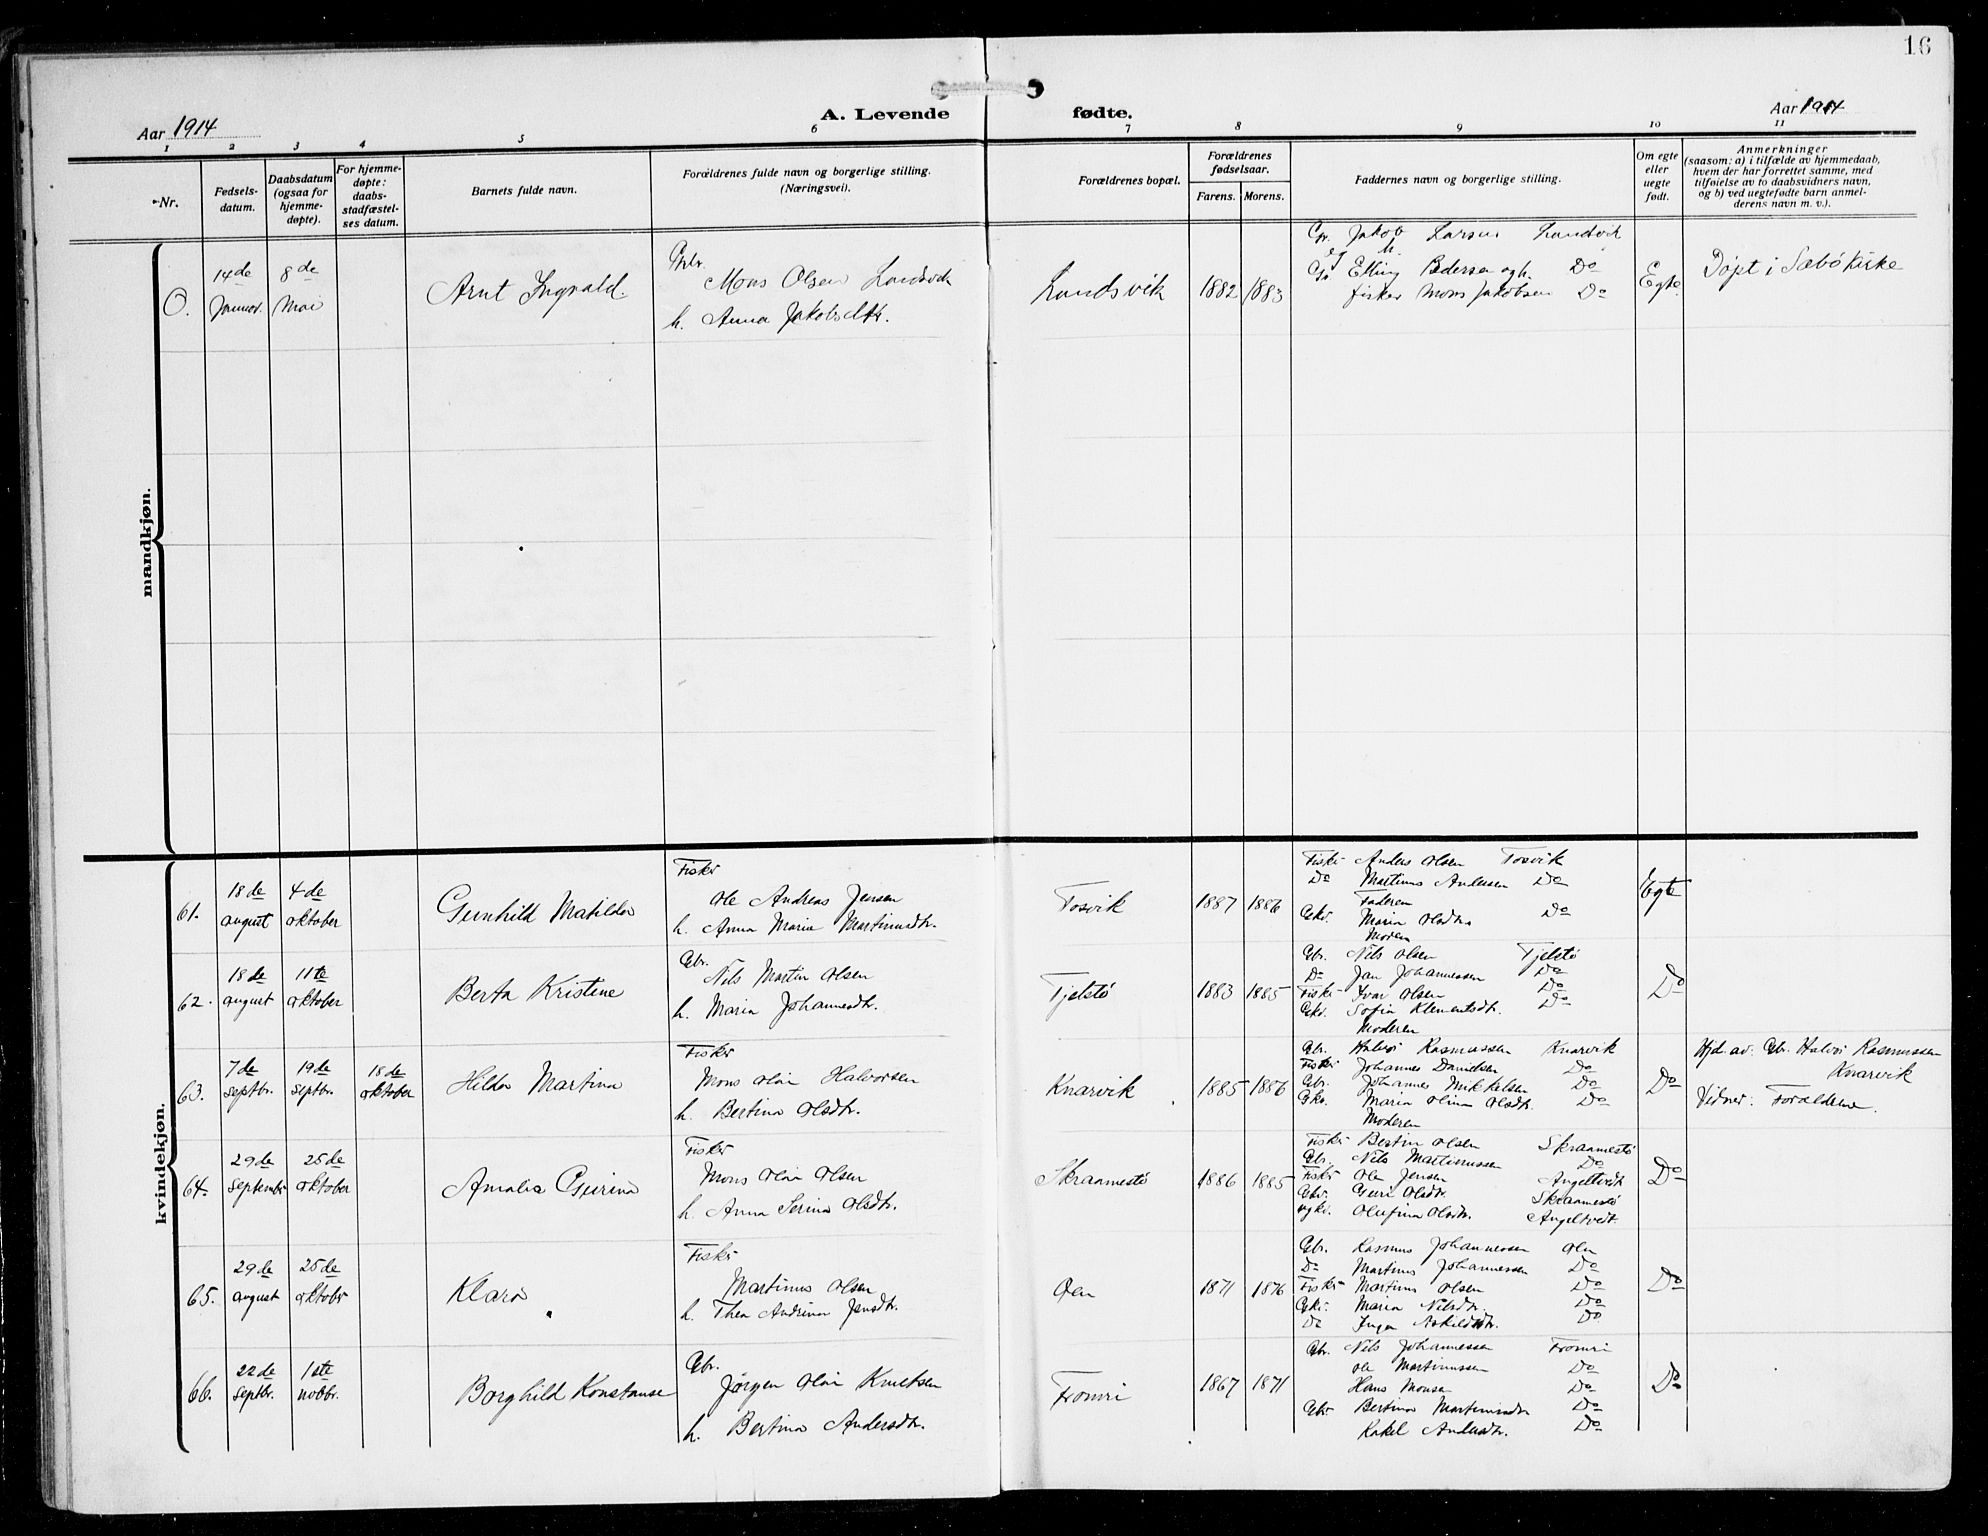 16
Aar 1914
A. Levende fødte.
Aar 1914
1 2 3 4 5 6 7 8 9 10 11
Nr.
Fødsels-
datum.
Daabsdatum
(ogsaa for
hjemme-
døpte).
For hjemme-
døpte:
daabs-
stadfæstel-
ses datum.
Barnets fulde navn.
Forældrenes fulde navn og borgerlige stilling.
(Næringsvei).
Forældrenes bopæl.
Forældrenes
fødselsaar.
Farens. Morens.
Faddernes navn og borgerlige stilling.
Om egte
eller
uegte
født.
Anmerkninger
(saasom: a) i tilfælde av hjemmedaab,
hvem der har forrettet samme, med
tilføielse av to daabsvidners navn,
og b) ved uegtefødte barn anmel-
derens navn m. v.).
mandkjøn.
O.
14de
Januar.
8de
Mai
Arnt Ingvald.
Mons Olsen Landsvik
h. Anna Jakobsdtr.
Landsvik
1882
1883
Jakob Larsen Landsvik
Elling Pedersen og h. Do
fisker Mons Jakobsen Do
Egte.
Døpt i Sæbö Kirke
kvindekjøn.
61.
18de
august
4de
oktober
Gunhild Matilda
Fisker
Ole Andreas Jensen
h. Anna Marie Martinusdtr.
Tosvik
1887
1886
Fisker Anders Olsen Tosvik
Do Martinus Andersen Do
Faderen
Gkr. Maria Olsdtr. Do
Moderen
Egte
62.
18de
august
11te
oktober
Berta Kristine
Gbr.
Nils Martin Olsen
h. Maria Johannesdtr.
Tjelstö
1883
1885
Gbr. Nils Olsen Tjelstö
Do Jan Johannessen Do
Fisker Ivar Olsen Do
Gkr. Sofia Klementsdtr. Do
Moderen
Do
63.
7de
septbr.
19de
septbr.
18de
oktober
Hilda Martina
Fisker
Mons Olai Halvorsen
h. Bertina Olsdtr.
Knarvik
1885
1886
Gbr. Halvor Rasmussen Knarvik
Fisker Johannes Danielsen Do
Gbr. Johannes Mikkelsen Do
Gkr. Maria Olina Olsdtr. Do
Moderen
Do
Hjd. av: Gbr. Halvor Rasmussen
Knarvik
Vidner: Forældrene.
64.
29de
september
25de
oktober
Amalia Gurina
Fisker
Mons Olai Olsen
h. Anna Serina Olsdtr.
Skraamestö
1886
1885
Fisker Bertin Olsen Skraamestö
Gbr. Nils Martinussen Do
Fisker Ole Jensen Angeltveit
Gkr. Guri Olsdtr. Skraamestö
Ugkr. Olufina Olsdtr. Angeltvedt.
Do
65.
29de
august
25de
oktober
Klara
Fisker
Martinus Olsen
h. Thea Andrina Jensdtr.
Oen
1871
1876
Gbr. Rasmus Johannessen Oen
Do Martinus Johannessen Do
Fisker Martinus Olsen Do
Gkr. Maria Nilsdtr. Do
Do Inga Askildsdtr. Do
Do
66.
22de
septbr.
1ste
novbr.
Borghild Konstanse
Gbr.
Jörgen Olai Knutsen
h. Bertina Andersdtr.
Fromri
1867
1871
Gbr. Nils Johannessen Fromri
Ole Martinussen Do
Hans Monsen Do
Gkr. Bertina Martinusdtr Do
Rakel Andersdtr. Do
Do